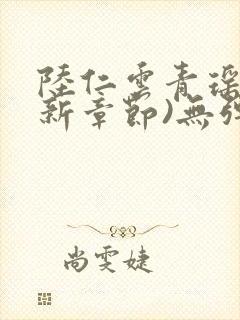 陸仁雲青瑶
新章節)無弹
尚雯婕